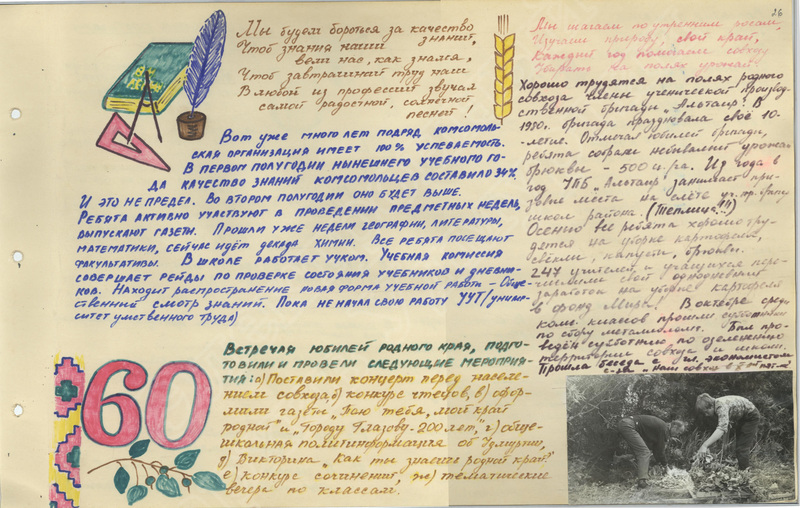 Мы будем бороться за качество
знаний,
Чтоб знания наши
вели нас, как знамя,
Чтоб завтрашний труд наш
В любой из профессий звучал
самой радостной, солнечной
песней!
Вот уже много лет подряд комсомоль-
ская организация имеет 100% успеваемость.
В первом полугодии нынешнего учебного го-
да качество знаний комсомольцев составило 34%
И это не предел. Во втором полугодии оно будет выше.
Ребята активно участвуют в проведении предметных недель,
выпускают газеты. Прошли уже недели географии, литературы,
математики, сейчас идёт декада химии. Все ребята посещают
факультативы. В школе работает учком. Учебная комиссия
совершает рейды по проверке состояния учебников и дневни-
ков. Находит распространение новая форма учебной работы – Обще-
ственный смотр знаний. Пока не начал свою работу УУТ (универ-
ситет умственного труда)
60
Встречая юбилей родного края, подго-
товили и провели следующие мероприя-
тия: а) Поставили концерт перед населе-
нием совхоза, б) конкурс чтецов, в) офор-
мили газеты „Пою тебя, мой край
родной" и „Городу Глазову – 200 лет", г) обще-
школьная политинформация об Удмуртии,
д) Викторина „Как ты знаешь родной край?"
е) конкурс сочинений, ж) тематические
вечера по классам.
26
Мы шагаем по утренним росам,
Изучаем природу, свой край,
Каждый год помогаем совхозу
Убирать на полях урожай.
Хорошо трудятся на полях родного
совхоза члены ученической производ-
ственной бригады „Альтаир". В
1980г. бригада праздновала своё 10-
летие. Отмечая юбилей бригады,
ребята собрали небывалый урожай
брюквы – 500 ц/га. Из года в
год УПБ „Альтаир" занимает при-
зовые места на слёте уч. пр. бригад
школ района. (Теплица!!!)
Осенью все ребята хорошо тру-
дятся на уборке картофеля,
свёклы, капусты, брюквы.
247 учителей и учащихся пере-
числили свой однодневный
заработок на уборке картофеля
в фонд Мира! В октябре среди
комс. классов прошли субботники
по сбору металлолома. Был про-
ведён субботник по озеленению
территории совхоза и школы.
Прошла беседа с гл. экономистом
с-за „Наш совхоз в